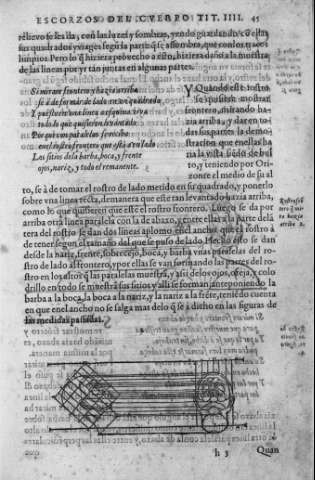 ESCORZOS DEL CVERPO. TIT. IIII. 45
relieuo se lea illa, con las luzes y sombras, y no do guardando c
sus quadrados y viages segu la parte q se assombra, que con los trazos
limpios Pero lo q hiziera prouecho a esto, hiziera daño a la muestra
de las lineas por yr tan juntas en algunas partes.
Si mirare frontero y hazia arriba
se à de formar de lado en vn quadrado,
I puesto en vna linea a esquina viua
en lado que quisieren frontero
Por que con paralelas se reciba
en el rostro frontero que està a vn lado
Los sitios dela barba, boca, y frente
ojos, nariz, y todo el remanente.
Y Quando este rostro
se quisiere mostrar
frontero, mirando ha-
zia arriba, y dar en to-
das sus partes la demo-
stracion que en ellas ha
ria la vista siedo de bul
to, y teniendo por Ori-
zonte el medio de su al
to, se à de tomar el rostro de lado metido en su quadrado, y ponerlo
sobre vna linea recta, demanera que este tan leuantado hazia arriba,
como lo que quisieren que este el rostro frontero. Luego se da por
arriba otra linea paralela con la de abaxo, y entre ellas a la parte delà
tera del rostro se dan dos lineas aplomo en el ancho que el rostro à
de tener segun el tamaño del que se puso de lado. Hecho esto se dan
desde la nariz, frente, sobrecejo, boca, y barba vnas paralelas del ros-
tro de lado al frontero, y por ellas se van formando las partes del ros-
tro en los altos q las paralelas muestrã, y assi delos ojos, oreja, y colo
drillo en todo se muestrã sus sitios y alli se forman anteponiendo la
barba a la boca, la boca a la nariz, y la nariz a la frẽte, teniẽdo cuenta
en que en el ancho no se salga mas delo q se à dicho en las figuras de
las medidas passadas.
Rostro frõ
tero q mi-
ra hazia
arriba 2.
h 3 Quan